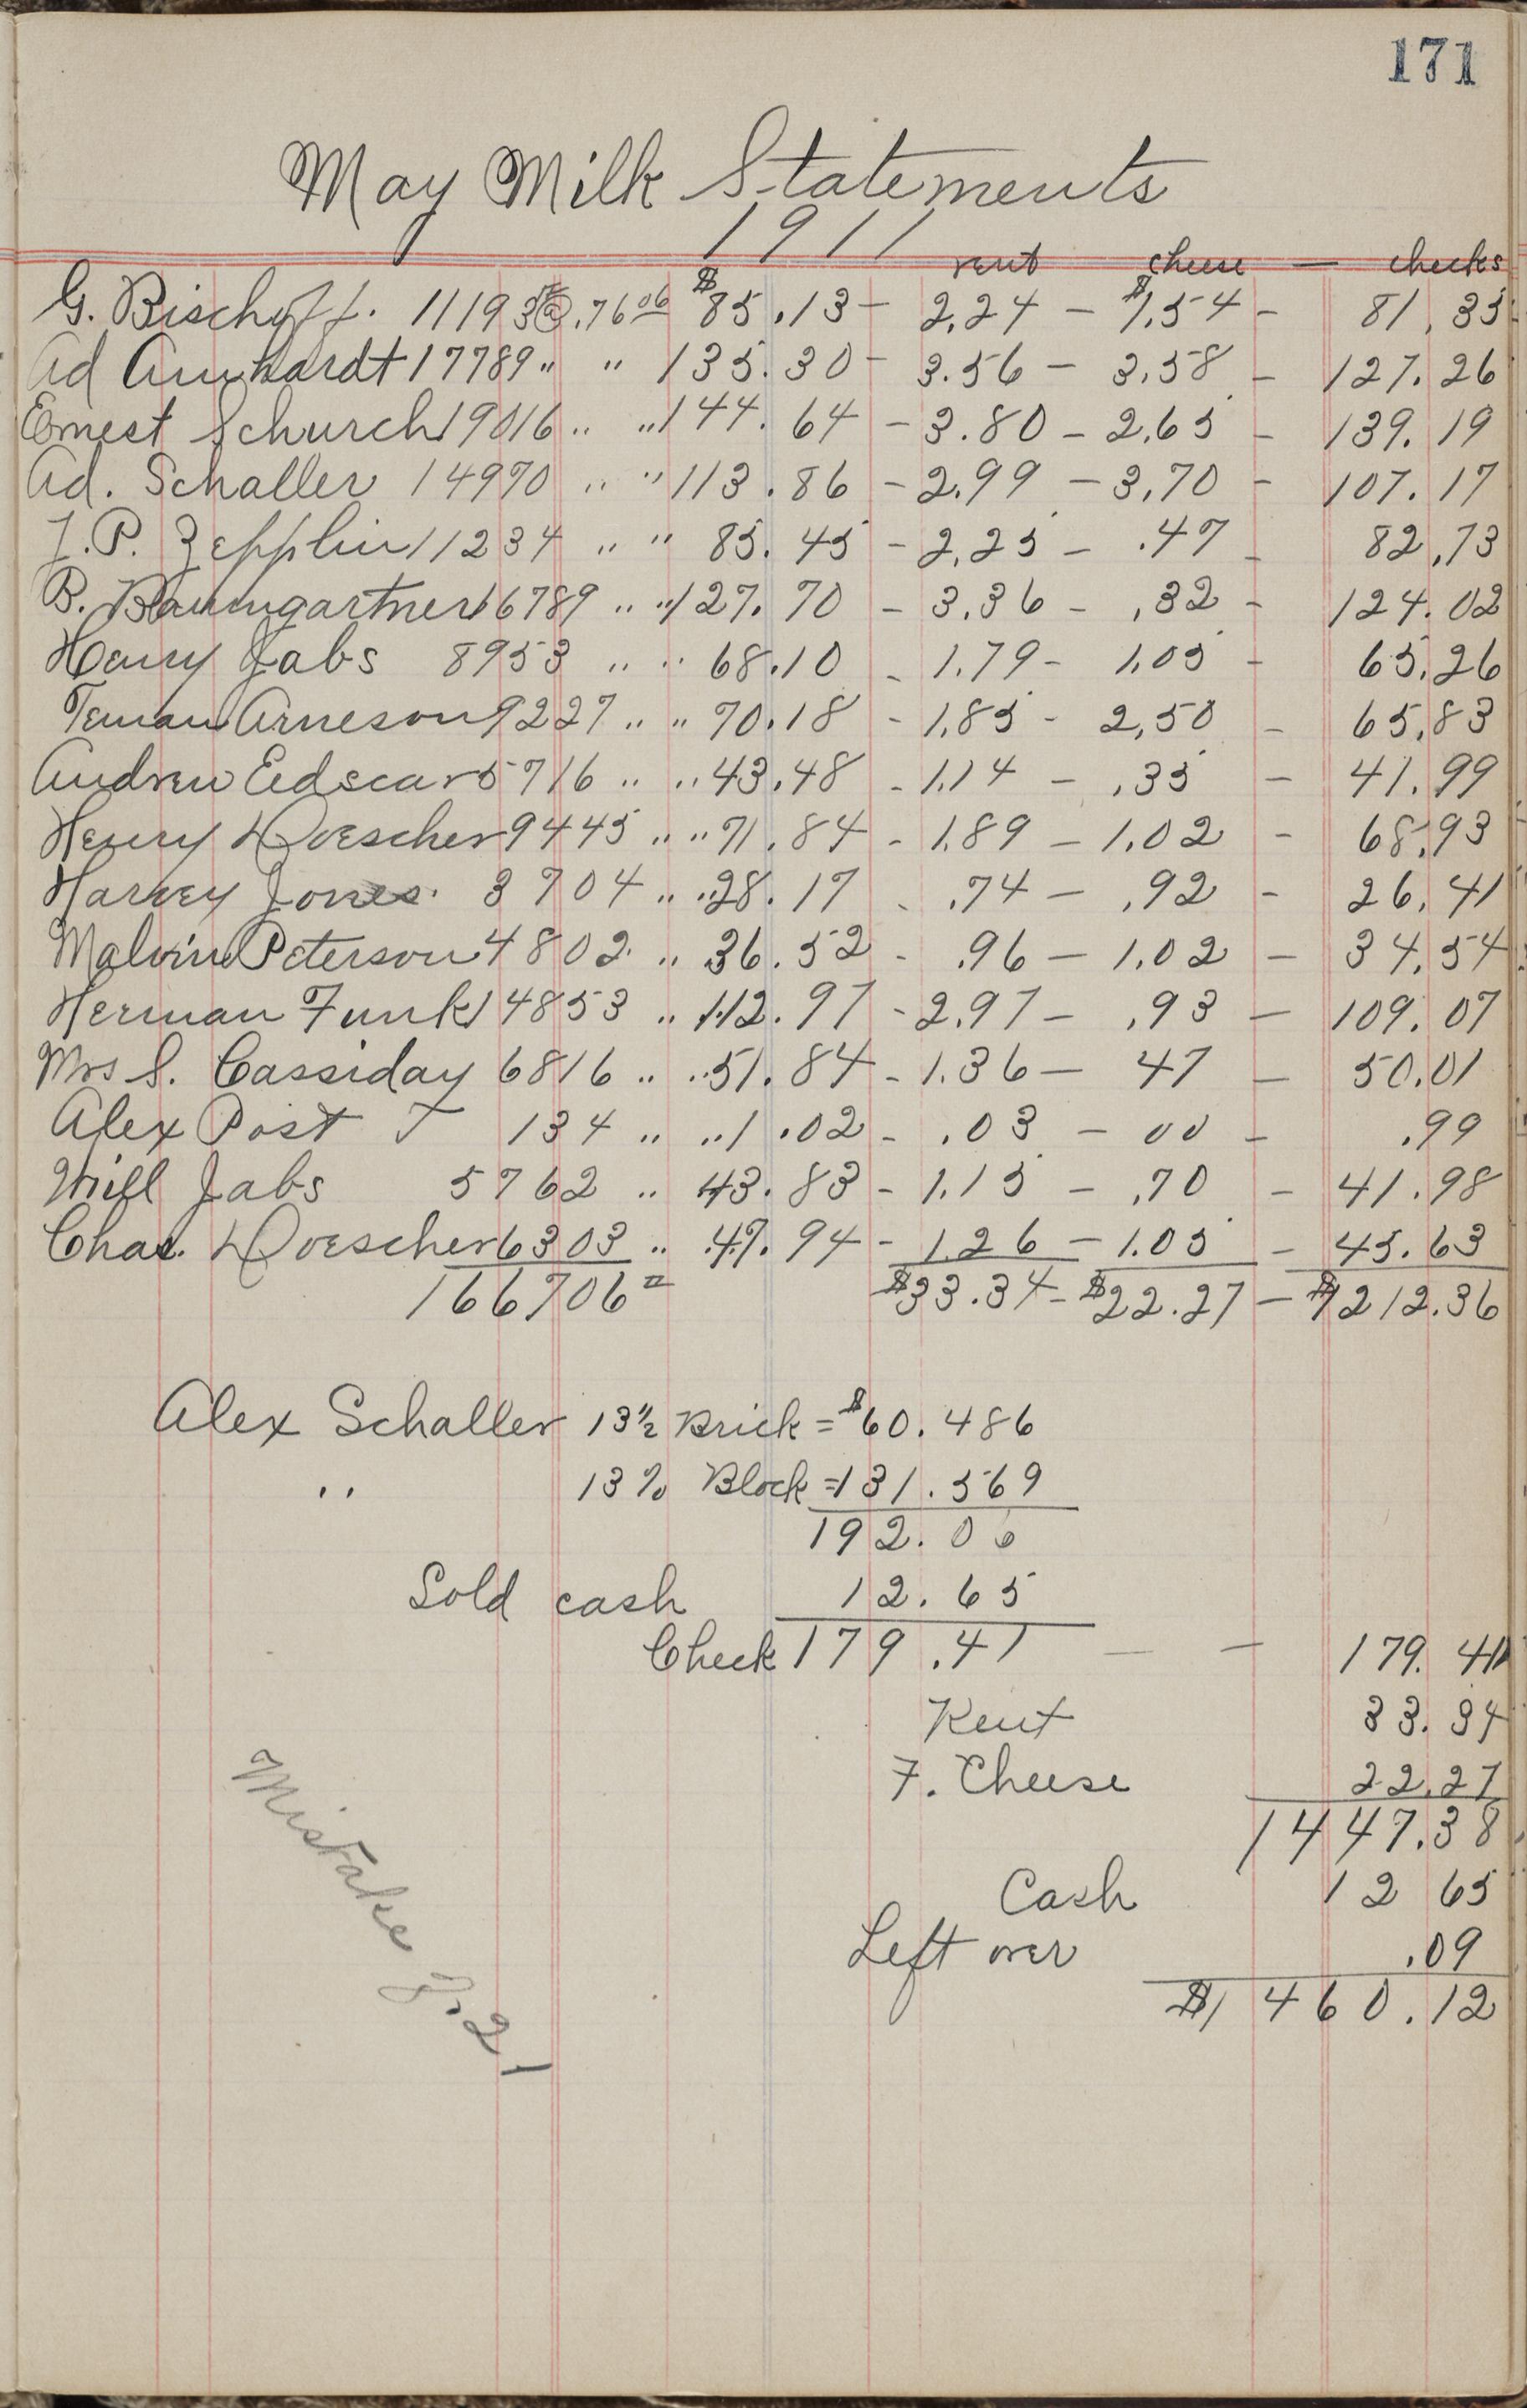 171
May Milk Statements
1911
rent cheese — checks
G. Bischoff. 11193# @ .76 06 $85.13 - 2.24 - $1.54 - 81.35
Ad Amhardt 17789 " " 135.30 - 3.56 - 3.58 - 127.26
Ernest Schurch 19016 " " 144.64 - 3.80 - 2.65 - 139.19
Ad. Schaller 14970 " " 113.86 - 2.99 - 3.70 - 107.17
J.P. Zepplin 11234 " " 85.45 - 2.25 - .47 - 82.73
B. Baumgartner 16789 " " 127.70 - 3.36 - .32 - 124.02
Henry Jabs 8953 " " 68.10 - 1.79 - 1.05 - 65.26
Teman Arneson 9227 " " 70.18 - 1.85 - 2.50 - 65.83
Andrew Edscar 5716 " " 43.48 - 1.14 - .35 - 41.99
Henry Doescher 9445 " " 71.84 - 1.89 - 1.02 - 68.93
Harvey Jones. 3704 " " 28.17 - .74 - .92 - 26.41
Malvin Peterson 4802 " 36.52 - .96 - 1.02 - 34.54
Herman Funk 14853 " 112.97 - 2.97 - .93 - 109.07
Mrs S. Cassiday 6816 " " 51.84 - 1.36 - 47 - 50.01
Alex Post 134 " " 1.02 - .03 - 00 - .99
Will Jabs 5762 " 43.83 - 1.15 - .70 - 41.98
Chas. Doescher 6303 " 47.94 - 1.26 - 1.05 - 45.63
166706# $33.34 - $22.27 - $1212.36
Alex Schaller 13½ Brick = $60.486
" 13% Block = 131.569
192.06
Sold cash 12.65
Check 179.41 — — 179.41
Rent 33.34
F. Cheese 22.27
1447.38
Cash 12 65
Left over .09
$1460.12
Mistake J.21